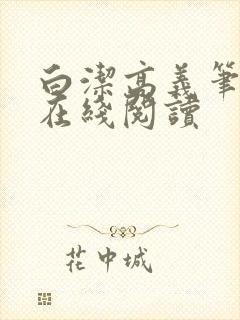 白潔高義筆
在綫閱讀
花中城